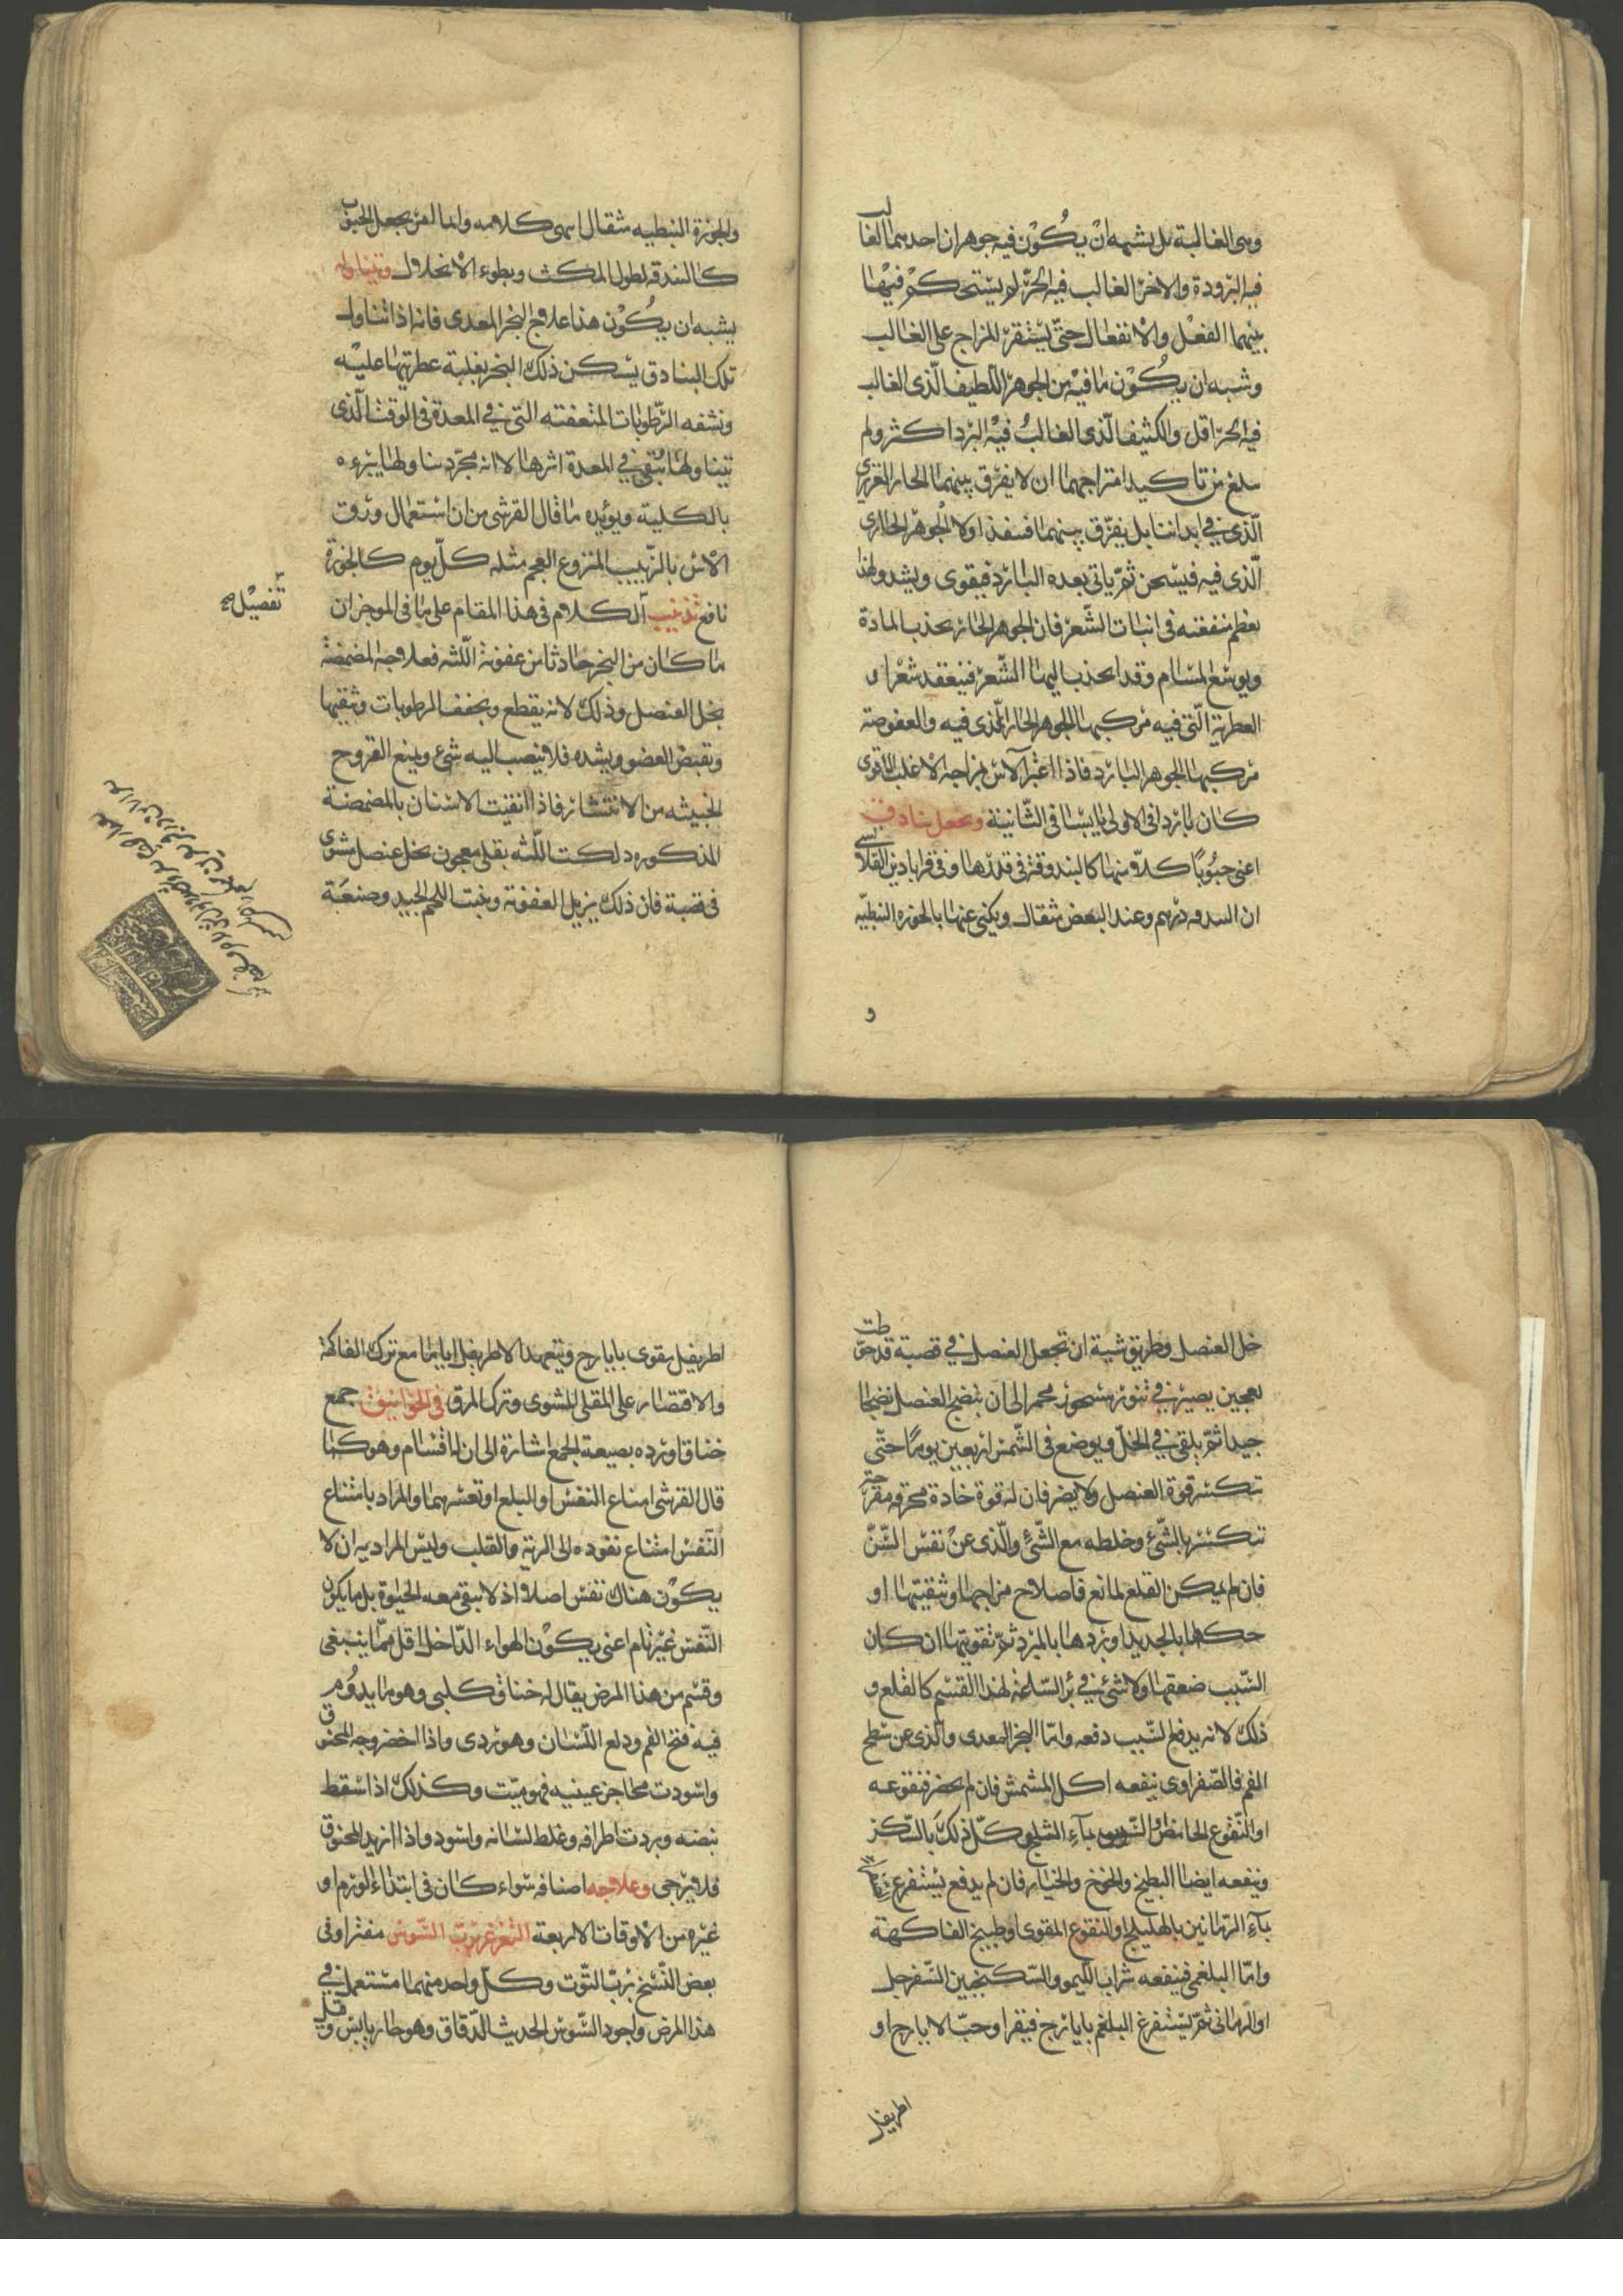 وهى الغالبة بل يشبه انْ يكُوْن فيه جوهران احدهما الغالب
فيه البرودة والاخر الغالب فيه الحرّ لم يستحكم فيهْا
بينهما الفعْل والانفعال حتّى يستقرّ المزاج على الغالب
وشبه ان يكُوْن مٰا فيه من الجوهر اللّطيف الّذى الغالب
فيه الحرّ اقل والكثيف الّذى الغالبُ فيه البرد اكثر ولم
يبلغ من تاكيد امتزاجهما ان لا يفرّق بينهما الحار الغريزى
الّذى فى ابداننا بل يفرّق بينهما فينفذ اولا الجوهر الحار الّذى
الّذى فيه فيسخن ثمّ ياتى بعده البارد فيقوى ويشد ولهذا
يعظم منفعته فى انبات الشّعر فان الجوهر الحار يجذب المادة
ويوسّع المسام وقد انجذب اليها الشّعر فينعقد شعرا و
العطرية الّتى فيه مركبها الجوهر الحار الّذى فيه والعفوصة
مركبها الجوهر البارد فاذا اعتبر الآس بمزاجه الاغلب الاقوى
كان باردا فى الاولى يابسا فى الثّانية ويجعل بنادق
اعنى حبُوبًا كلّ منها كالبندوقة فى قدرها وفى قرابادين القلانسى
ان البندقه درهم وعند البعض مثقال ويكنى عنها بالجوزه النبطيّه
و
والجوزة النبطيه مثقال انتهى كلامه وانما امر بجعل الحبوب
كالبندقه لطول المكث وبطوء الانحلال ويتناوله
يشبه ان يكُوْن هذا علاج البخر المعدى فانه اذا تناول
تلك البنادق يسكن ذلك البخر بغلبة عطريتها عليْه
ونشفه الرّطوبات المتعفنه التى فى المعدة فى الوقت الّذى
تيناولها يبقى فى المعدة اثرها لا انه مجّرد تناولها يبرءه
بالكلية ويؤيده ما قال القرشى من ان استعمال ورق
الآس بالزّبيب المنزوع العجم مثله كلّ يوم كالجوزة
نافع تذنيب الكلام فى هذا المقام على ما فى الموجز ان
تفصيل
ما كان من البخر حادثا من عفونة اللّثه فعلاجه المضمضة
بخل العنصل وذلك لانه يقطع ويجفف الرطوبات وينقيها
ويقبض العضو ويشده فلا ينصب اليه شىء ويمنع القروح
الخبيثه من الانتشار فاذا انقيت الاسنان بالمضمضة
المذكوره دلكت اللّثه بقلى معجون بخل عنصل مشوى
فى قصبة فان ذلك يزيل العفونة وينبت اللحم الجيد وصنعَة
خل العنصل وطريق شيه ان تجعل العنصل فى قصبة قد
بعجين يصير فى تنور مسجور محمر الى ان ينضج العنصل نضجا
جيدا ثمّ يلقى فى الخلّ ويوضع فى الشّمس اربعين يومًا حتّى
تكسر قوة العنصل ولا يضر فان له قوة حادة محرقه مقرحة
تنكسر بالشّىّ وخلطه مع الشّئ والّذى عنْ نفس السّنّ
فان لم يمكن القلع لمانع فاصلاح مزاجها وتنقيتها او
حكها بالحديد او بردها بالمبرد ثمّ تقويتها ان كان
السّبب ضعفها ولا شئ فى برّ السّلعة لهذا القسم كالقلع و
ذلك لانه يدفع السّبب دفعه وامّا البخر المعدى والّذى عن سطح
الفم فالصّفراوى ينفعه اكل المشمش فان لم يحضر فنقوعه
او النّقوع الحامض والسّويق بماء الثلج كلّ ذلكَ بالسّكر
وينفعه ايضا البطيخ والخوخ والخيار فان لم يدفع يستفرغ
بماءِ الرّمانين بالهليلج او النقوع المقوى او طبيخ الفاكهة
وامّا البلغمى فينفعه شراب اللّيمو والسّكنجبين السّفرجل
او الرمانى ثمّ ليستفرغ البلغم بايارج فيقرا وحبّ الايارج او
اطريفل
اطريفل مقوى بايارج ويتعهد الاطريفل اياما مع ترك الفاكهة
والاقتصار على المقلى المشوى وترك المرق فى الخوانيق جمع
خناق اورده بصيغة الجمع اشارة الى ان له اقسام وهو كما
قال القرشى امتناع النفس او البلع او تعسرهما والمراد بامتناع
النّفس امتناع نفوده الى الرية والقلب وليس المراد به ان لا
يكوْن هناك نفس اصلا اذ لا يبقى معه الحيوة بل ما يكون
النّفس غير تام اعنى يكوْن الهواء الدّاخل اقل ممّا ينبغى
وقسم من هذا المرض يقال له خناق كلبى وهو ما يدوم
فيه فتح الفم ودلع اللّسان وهو ردى واذا اخضر وجه المخنوق
واسودت محاجز عينيه فهو ميّت وكذلك اذا سقط
نبضه وبردت اطرافه وغلظ لسانه واسود واذا ازبد المخنوق
فلا يرجى وعلاجه اصنافه سواء كان فى ابتداء الورم او
غيره من الاوقات الاربعة التغرغر بربّ السّوس مفترا وفى
بعض النّسخ بربّ التّوت وكلّ واحد منهما مستعمل فى
هذا المرض واجود السّوس الحديث الدّقاق وهو حار يابس وقيل